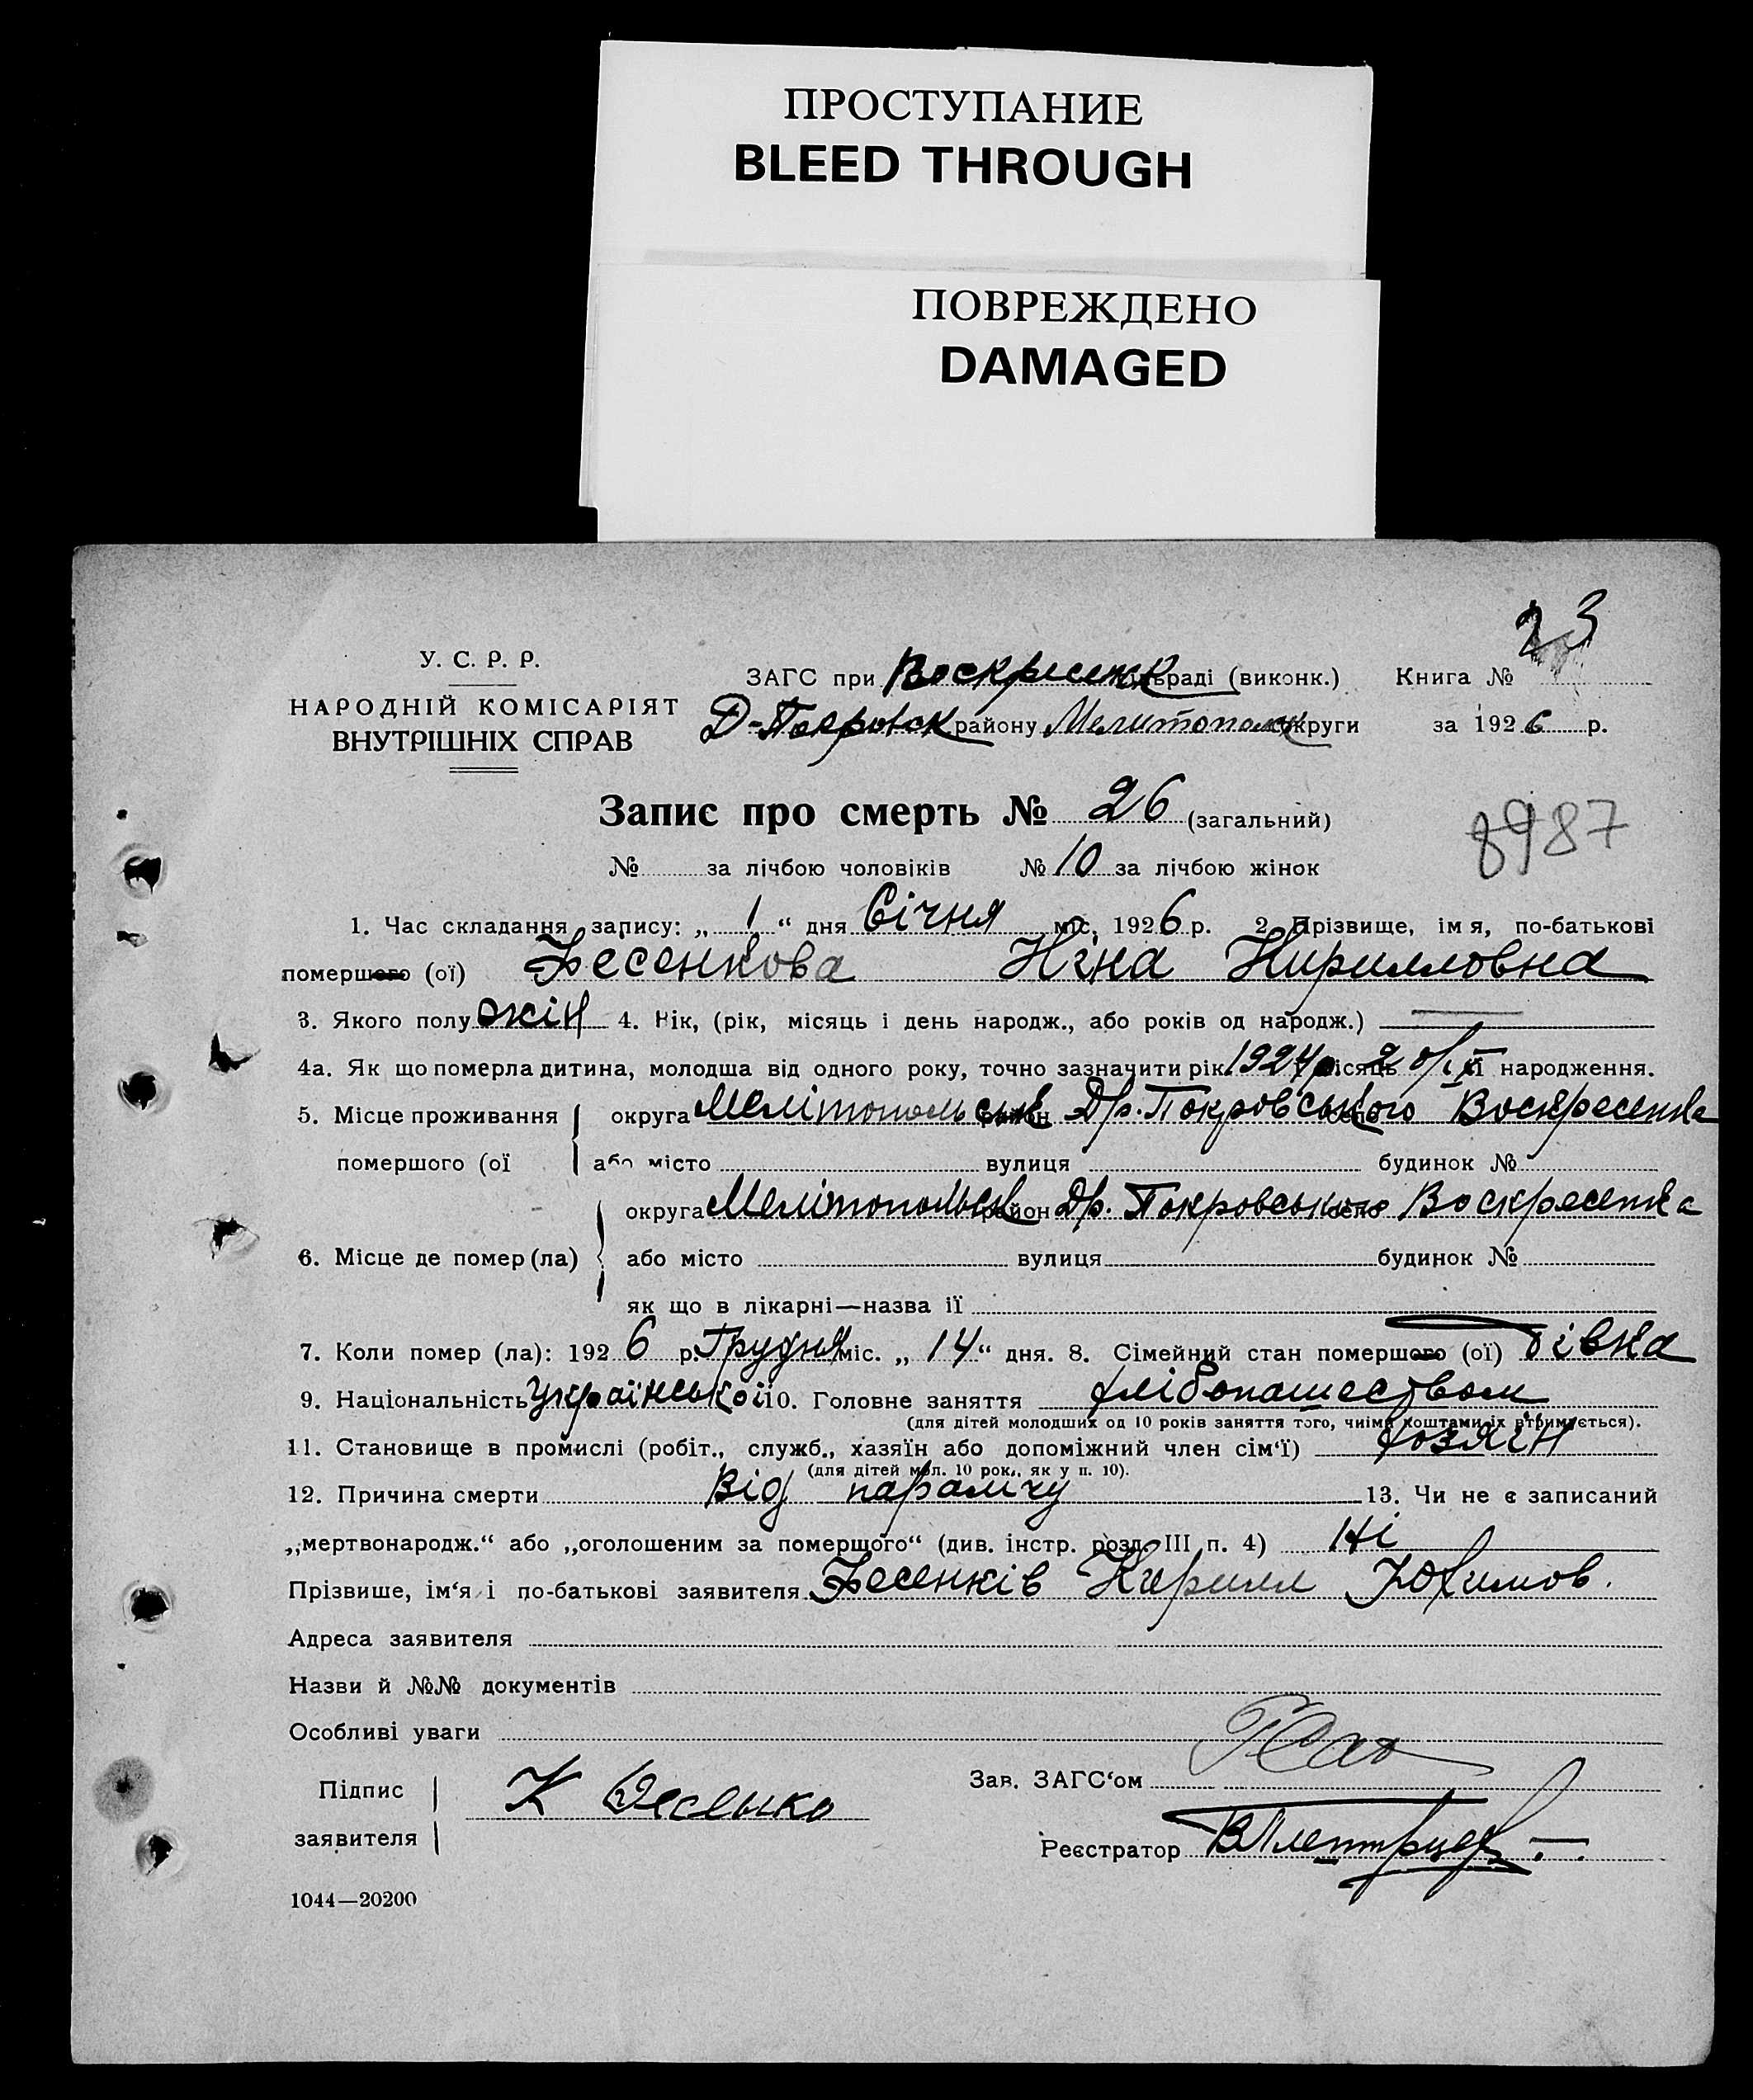 ПРОСТУПАНИЕ
BLEED THROUGH
ПОВРЕЖДЕНО
DAMAGED
23
У. С. Р. Р.
НАРОДНІЙ КОМІСАРІЯТ
ВНУТРІШНІХ СПРАВ
ЗАГС при Воскресенк раді (виконк.) Книга №
Д-Покровск району Мелитопольск округи за 1926 р.
Запис про смерть № 26 (загальний)
8987
№ за лічбою чоловіків № 10 за лічбою жінок
1. Час складання запису: „ 1 “ дня Січня міс. 1926 р. 2. Прізвище, імя, по-батькові
помершого (ої) Фесенкова Ніна Кирилловна
3. Якого полу жін 4. Вік, (рік, місяць і день народж., або років од народж.)
4а. Як що померла дитина, молодша від одного року, точно зазначити рік 1924 р місяць 2 її народження.
5. Місце проживання округа Мелітопольськ район Др. Покровського село Воскресенка
помершого (ої або місто вулиця будинок №
округа Мелітопольськ район Др. Покровського село Воскресенка
6. Місце де помер (ла) або місто вулиця будинок №
як що в лікарні—назва її
7. Коли помер (ла): 1926 р. Грудня міс. „ 14 “ дня. 8. Сімейний стан помершого (ої) дівка
9. Національність Української 10. Головне заняття хлібопашеством
(для дітей молодших од 10 років заняття того, чиїми коштами їх втримується).
11. Становище в промислі (робіт., служб., хазяїн або допоміжний член сім‘ї) хозяїн
(для дітей мол. 10 рок., як у п. 10).
12. Причина смерти Від паралічу 13. Чи не є записаний
„мертвонародж.“ або „оголошеним за помершого“ (див. інстр. розд. III п. 4) Ні
Прізвише, ім‘я і по-батькові заявителя Фесенків Кирилл Юхимов.
Адреса заявителя
Назви й №№ документів
Особливі уваги
Підпис
заявителя
К Фесенко
Зав. ЗАГС‘ом
Реєстратор
1044—20200